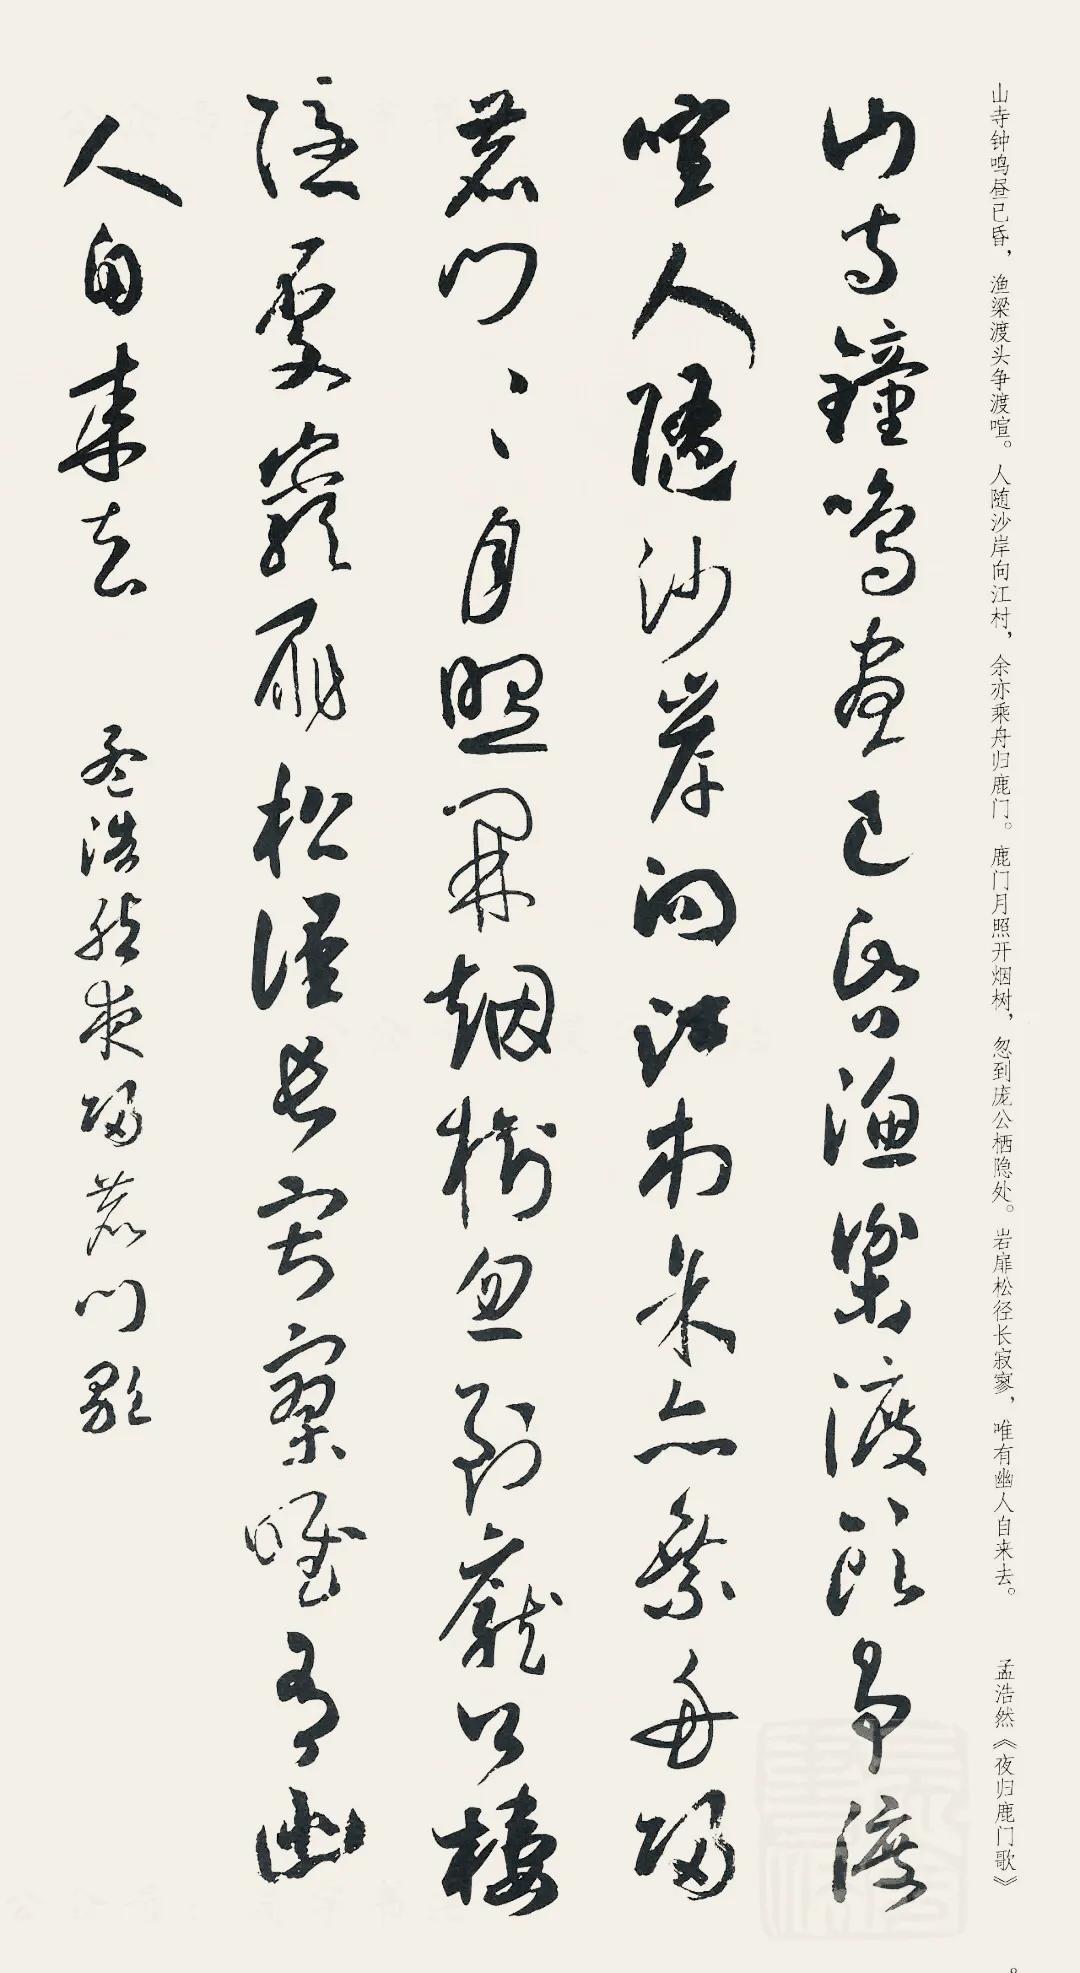 山寺钟鸣昼已昏，渔梁渡头争渡喧。人随沙岸向江村，余亦乘舟归鹿门。鹿门月照开烟树，忽到庞公栖隐处。岩扉松径长寂寥，唯有幽人自来去。 孟浩然《夜归鹿门歌》
山寺鐘鳴晝已昏漁梁渡頭爭渡
喧人隨沙岸向江村余亦乘舟歸
鹿門〻月照開煙樹忽到龐公棲
隱處巖扉松徑長寂寥唯有幽
人自來去 孟浩然夜歸鹿門歌